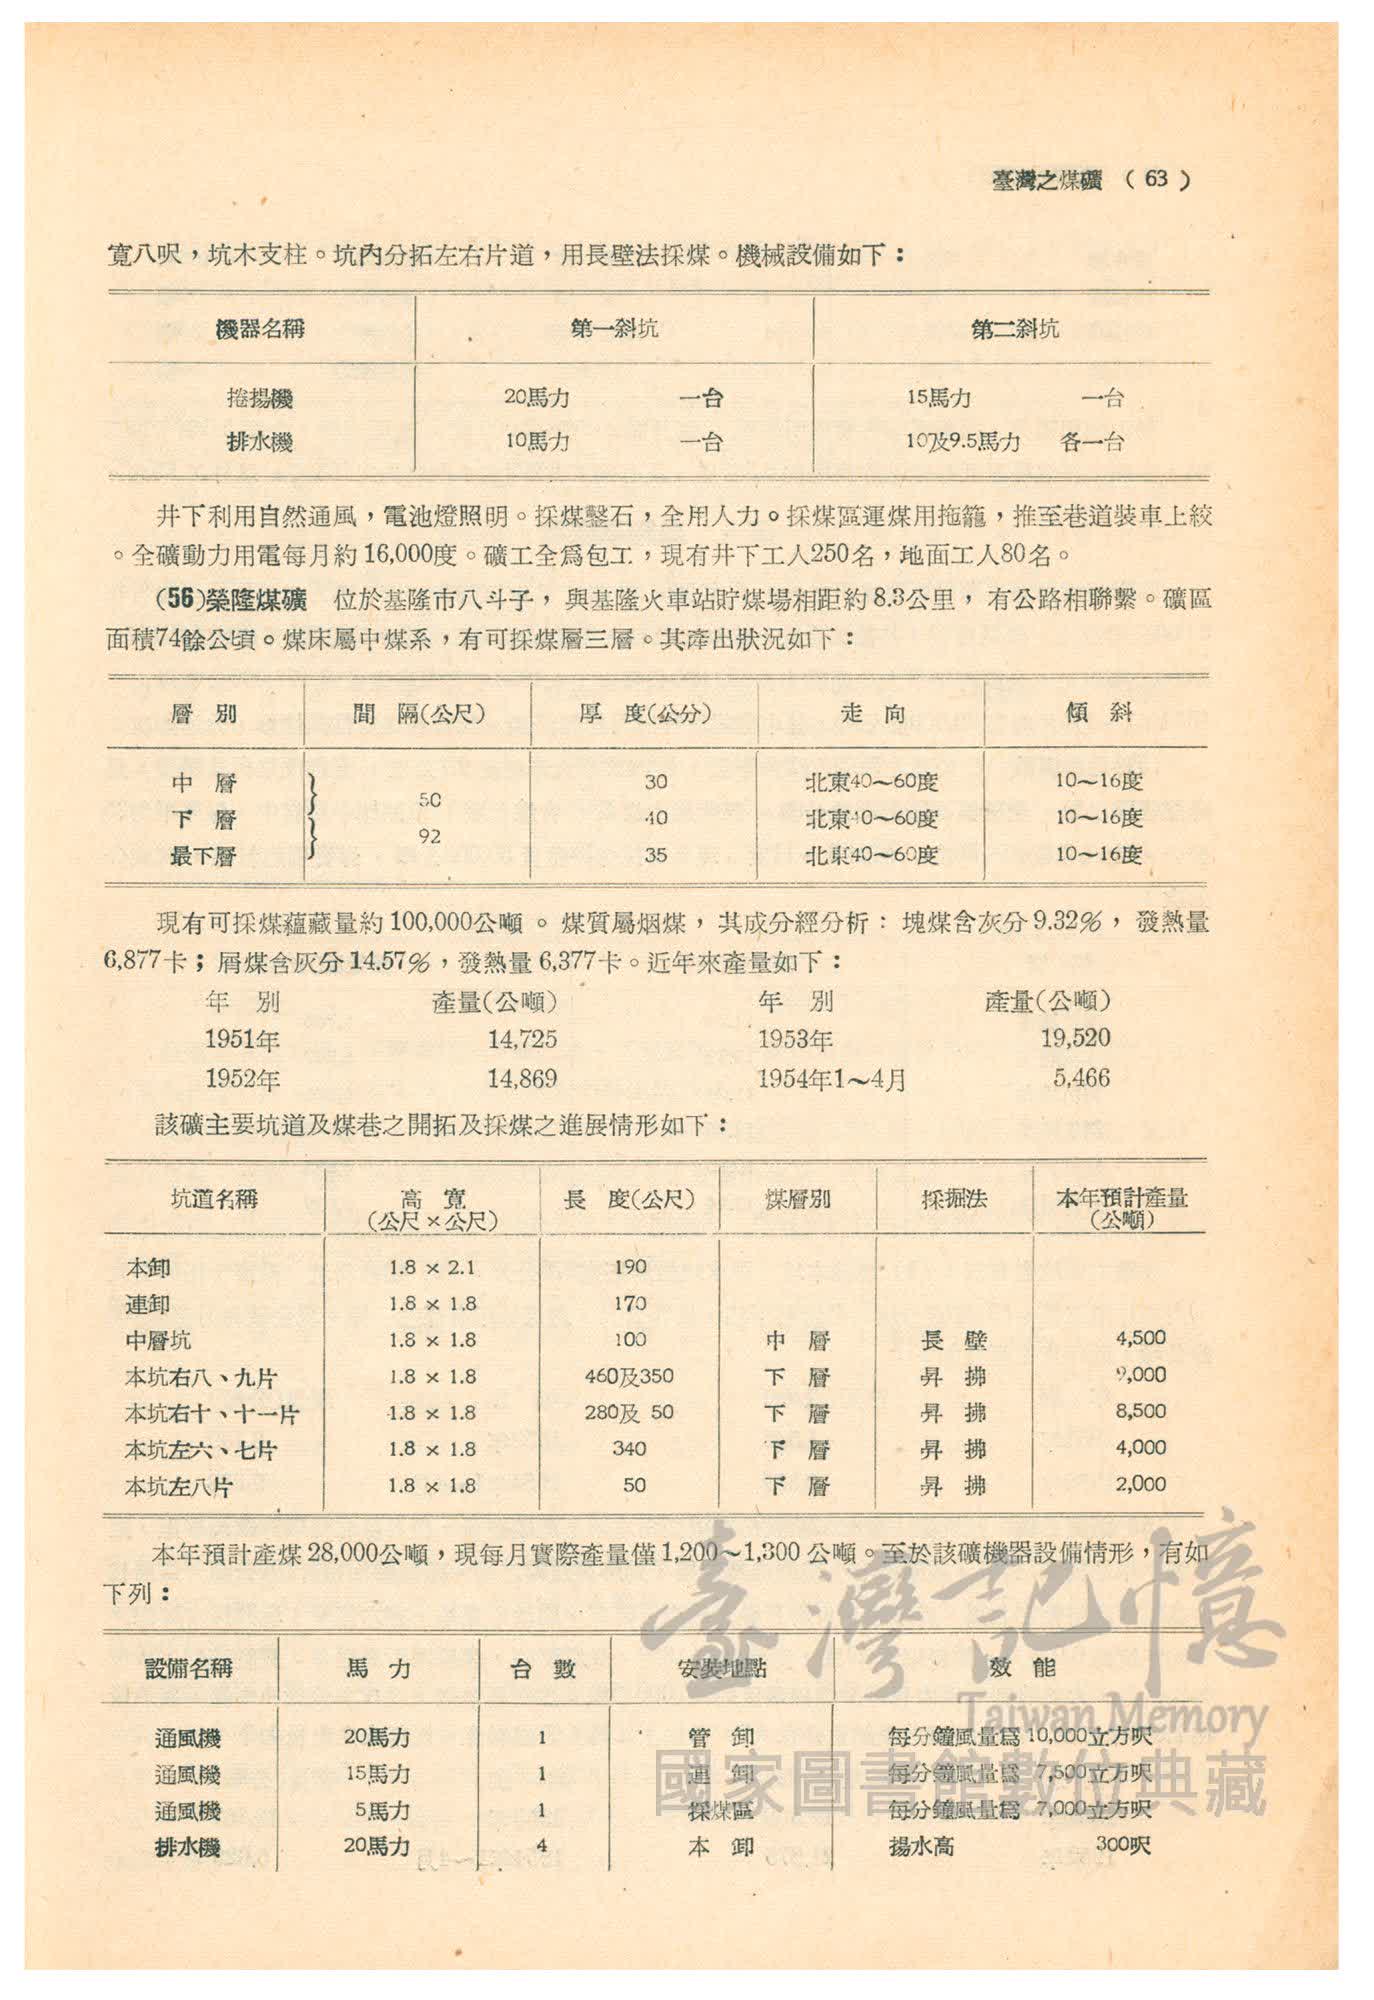 臺灣之煤礦 （ 63 ）
寬八呎，坑木支柱。坑內分拓左右片道，用長壁法採煤。機械設備如下：
機器名稱 第一斜坑 第二斜坑
捲揚機 20馬力 一台 15馬力 一台
排水機 10馬力 一台 10及9.5馬力 各一台
井下利用自然通風，電池燈照明。採煤鑿石，全用人力。採煤區運煤用拖籠，推至巷道裝車上絞
。全礦動力用電每月約16,000度。礦工全爲包工，現有井下工人250名，地面工人80名。
(56)榮隆煤礦 位於基隆市八斗子， 與基隆火車站貯煤場相距約8.3公里， 有公路相聯繫。礦區
面積74餘公頃。煤床屬中煤系，有可採煤層三層。其產出狀況如下：
層 別 間 隔(公尺) 厚 度(公分) 走 向 傾 斜
中 層 30 北東40～60度 10～16度
50
下 層 40 北東40～60度 10～16度
92
最下層 35 北東40～60度 10～16度
現有可採煤蘊藏量約100,000公噸。煤質屬烟煤， 其成分經分析： 塊煤含灰分9.32%， 發熱量
6,877卡；屑煤含灰分14.57%，發熱量6,377卡。近年來產量如下：
年 別 產量(公噸) 年 別 產量(公噸)
1951年 14,725 1953年 19,520
1952年 14,869 1954年1～4月 5,466
該礦主要坑道及煤巷之開拓及採煤之進展情形如下：
坑道名稱 高 寬 長 度(公尺) 煤層別 採掘法 本年預計產量
(公尺×公尺) (公噸)
本卸 1.8 × 2.1 190
連卸 1.8 × 1.8 170
中層坑 1.8 × 1.8 100 中 層 長 壁 4,500
本坑右八、九片 1.8 × 1.8 460及350 下 層 昇 拂 9,000
本坑右十、十一片 1.8 × 1.8 280及 50 下 層 昇 拂 8,500
本坑左六、七片 1.8 × 1.8 340 下 層 昇 拂 4,000
本坑左八片 1.8 × 1.8 50 下 層 昇 拂 2,000
本年預計產煤28,000公噸，現每月實際產量僅1,200～1,300公噸。至於該礦機器設備情形，有如
下列：
設備名稱 馬 力 台 數 安裝地點 效 能
通風機 20馬力 1 管 卸 每分鐘風量爲10,000立方呎
通風機 15馬力 1 連 卸 每分鐘風量爲 7,500立方呎
通風機 5馬力 1 採煤區 每分鐘風量爲 7,000立方呎
排水機 20馬力 4 本 卸 揚水高 300呎
臺灣記憶
Taiwan Memory
國家圖書館數位典藏